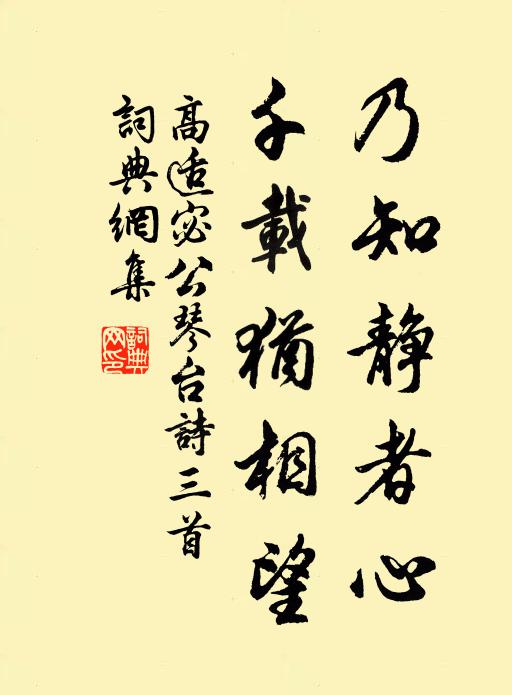 乃知静者心
千載猶相望
高适宓公琴台詩三首
詞典網集
詞典網印